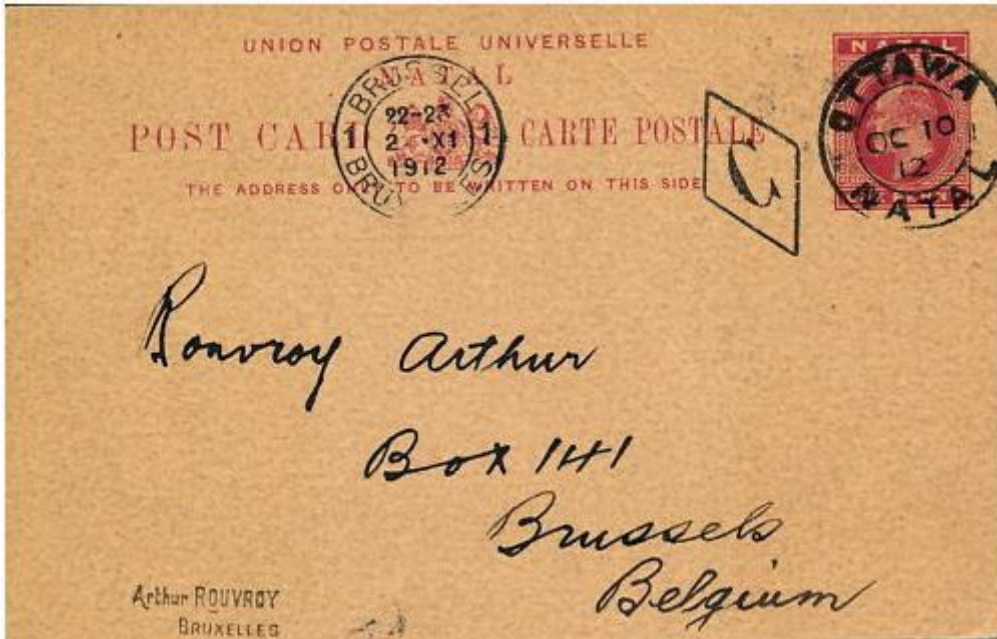 UNION POSTALE UNIVERSELLE
NATAL
NATAL
POST CARD CARTE POSTALE
THE ADDRESS ONLY TO BE WRITTEN ON THIS SIDE
BRUSSEL
1 22-23 1
2 ·XI
1912
OTTAWA
OC 10
12
NATAL
Rouvroy Arthur
Box 141
Brussels
Belgium
Arthur ROUVROY
BRUXELLES